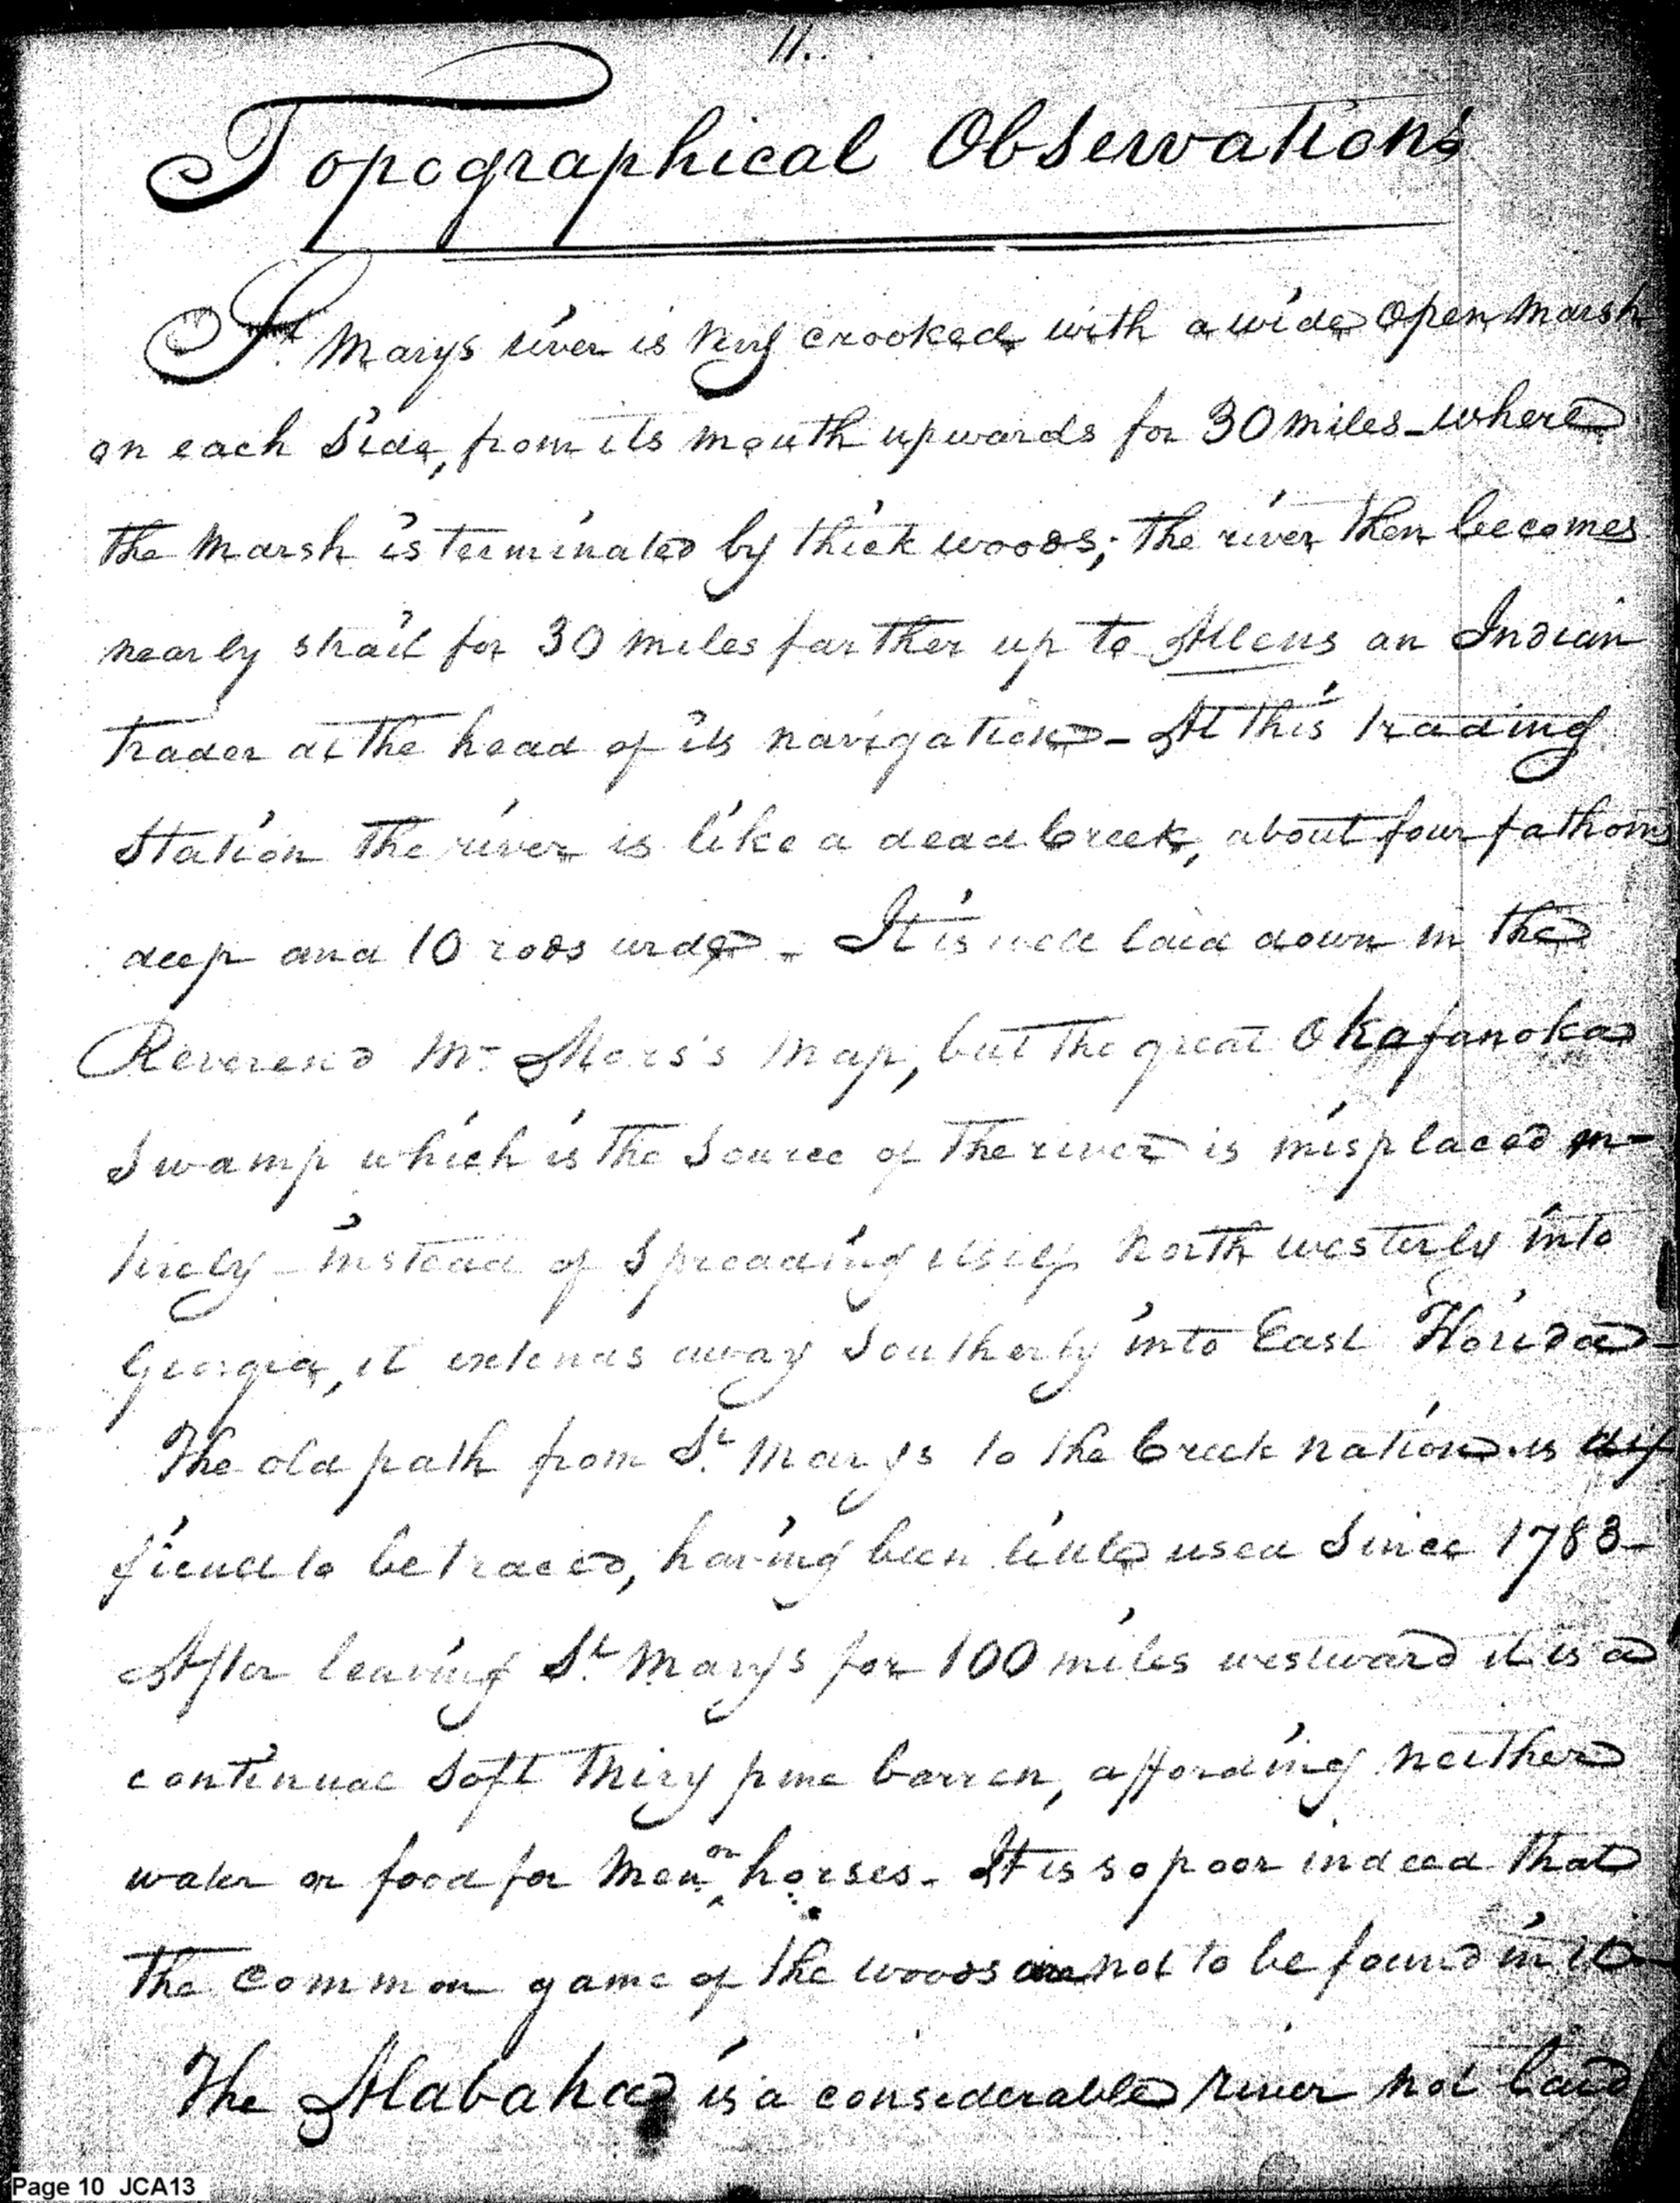 11.
Topographical Observations
St. Marys river is very crooked with a wide open marsh
on each side, from its mouth upwards for 30 miles - where
the marsh is terminated by thick woods; the river then becomes
nearly strait for 30 miles farther up to Allens an Indian
trader at the head of its navigation - At this trading
Station the river is like a dead Creek, about four fathoms
deep and 10 rods wide - It is well laid down in the
Reverend Mr Mors's map, but the great Okafanoka
Swamp which is the source of the river is misplaced en-
tirely - instead of spreading itself north westerly into
Georgia, it extends away Southerly into East Florida -
The old path from St. Marys to the Creek nation is dif
ficult to be traced, having been little used since 1783 -
After leaving St. Marys for 100 miles westward it is a
continual soft miry pine barren, affording neither
water or food for men or horses - It is so poor indeed that
the common game of the woods are not to be found in it -
The Alabaha is a considerable river not laid
Page 10 JCA13